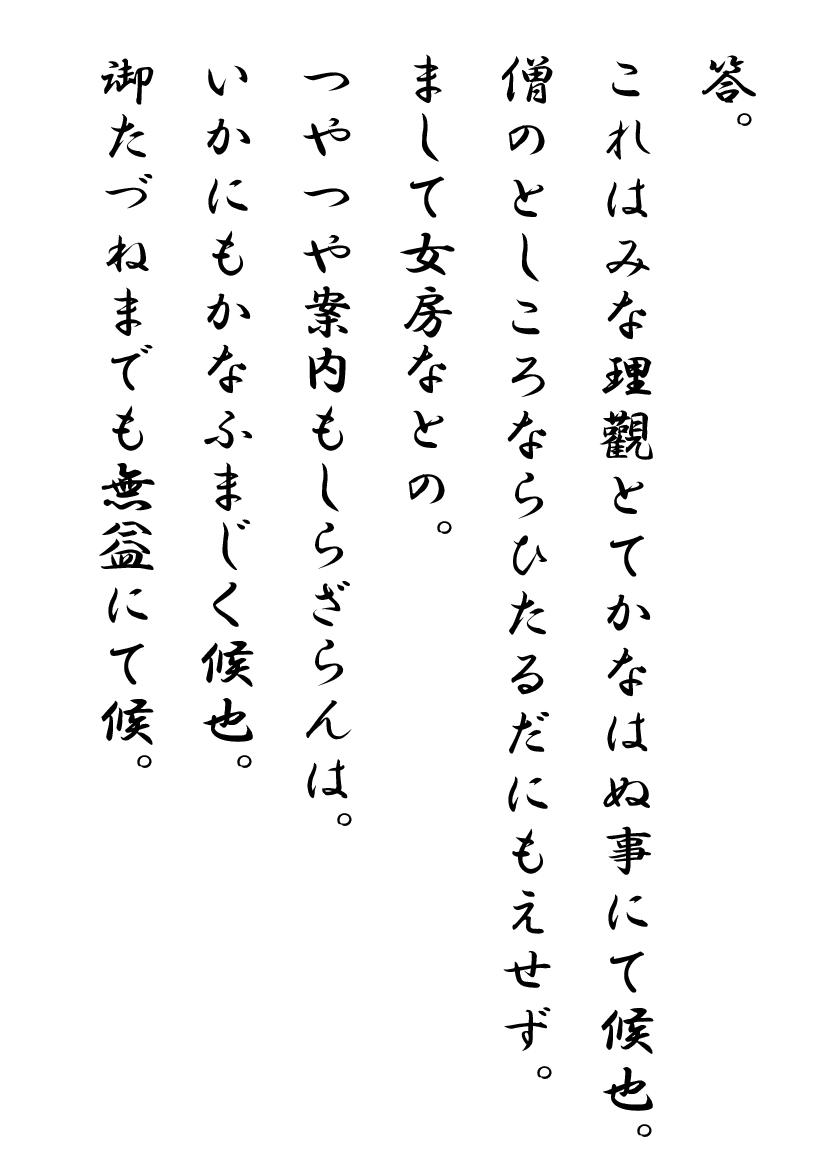 答。
これはみな理觀とてかなはぬ事にて候也。
僧のとしころならひたるだにもえせず。
まして女房なとの。
つやつや案内もしらざらんは。
いかにもかなふまじく候也。
御たづねまでも無益にて候。